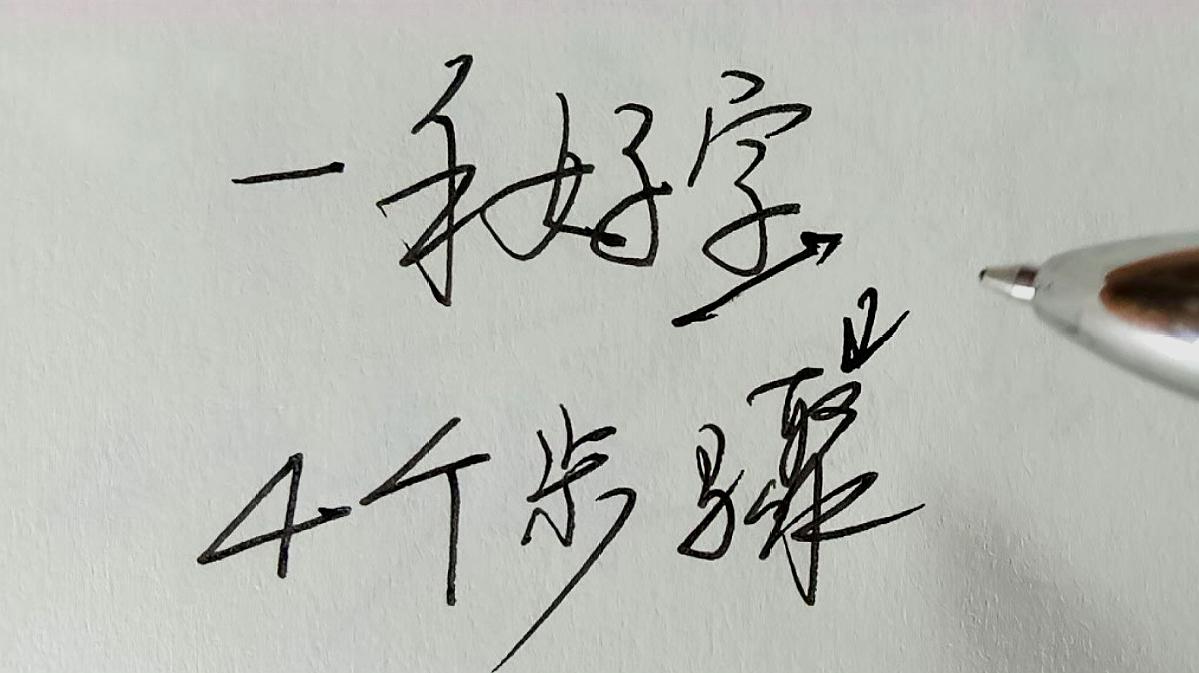 一手好字
4个步骤